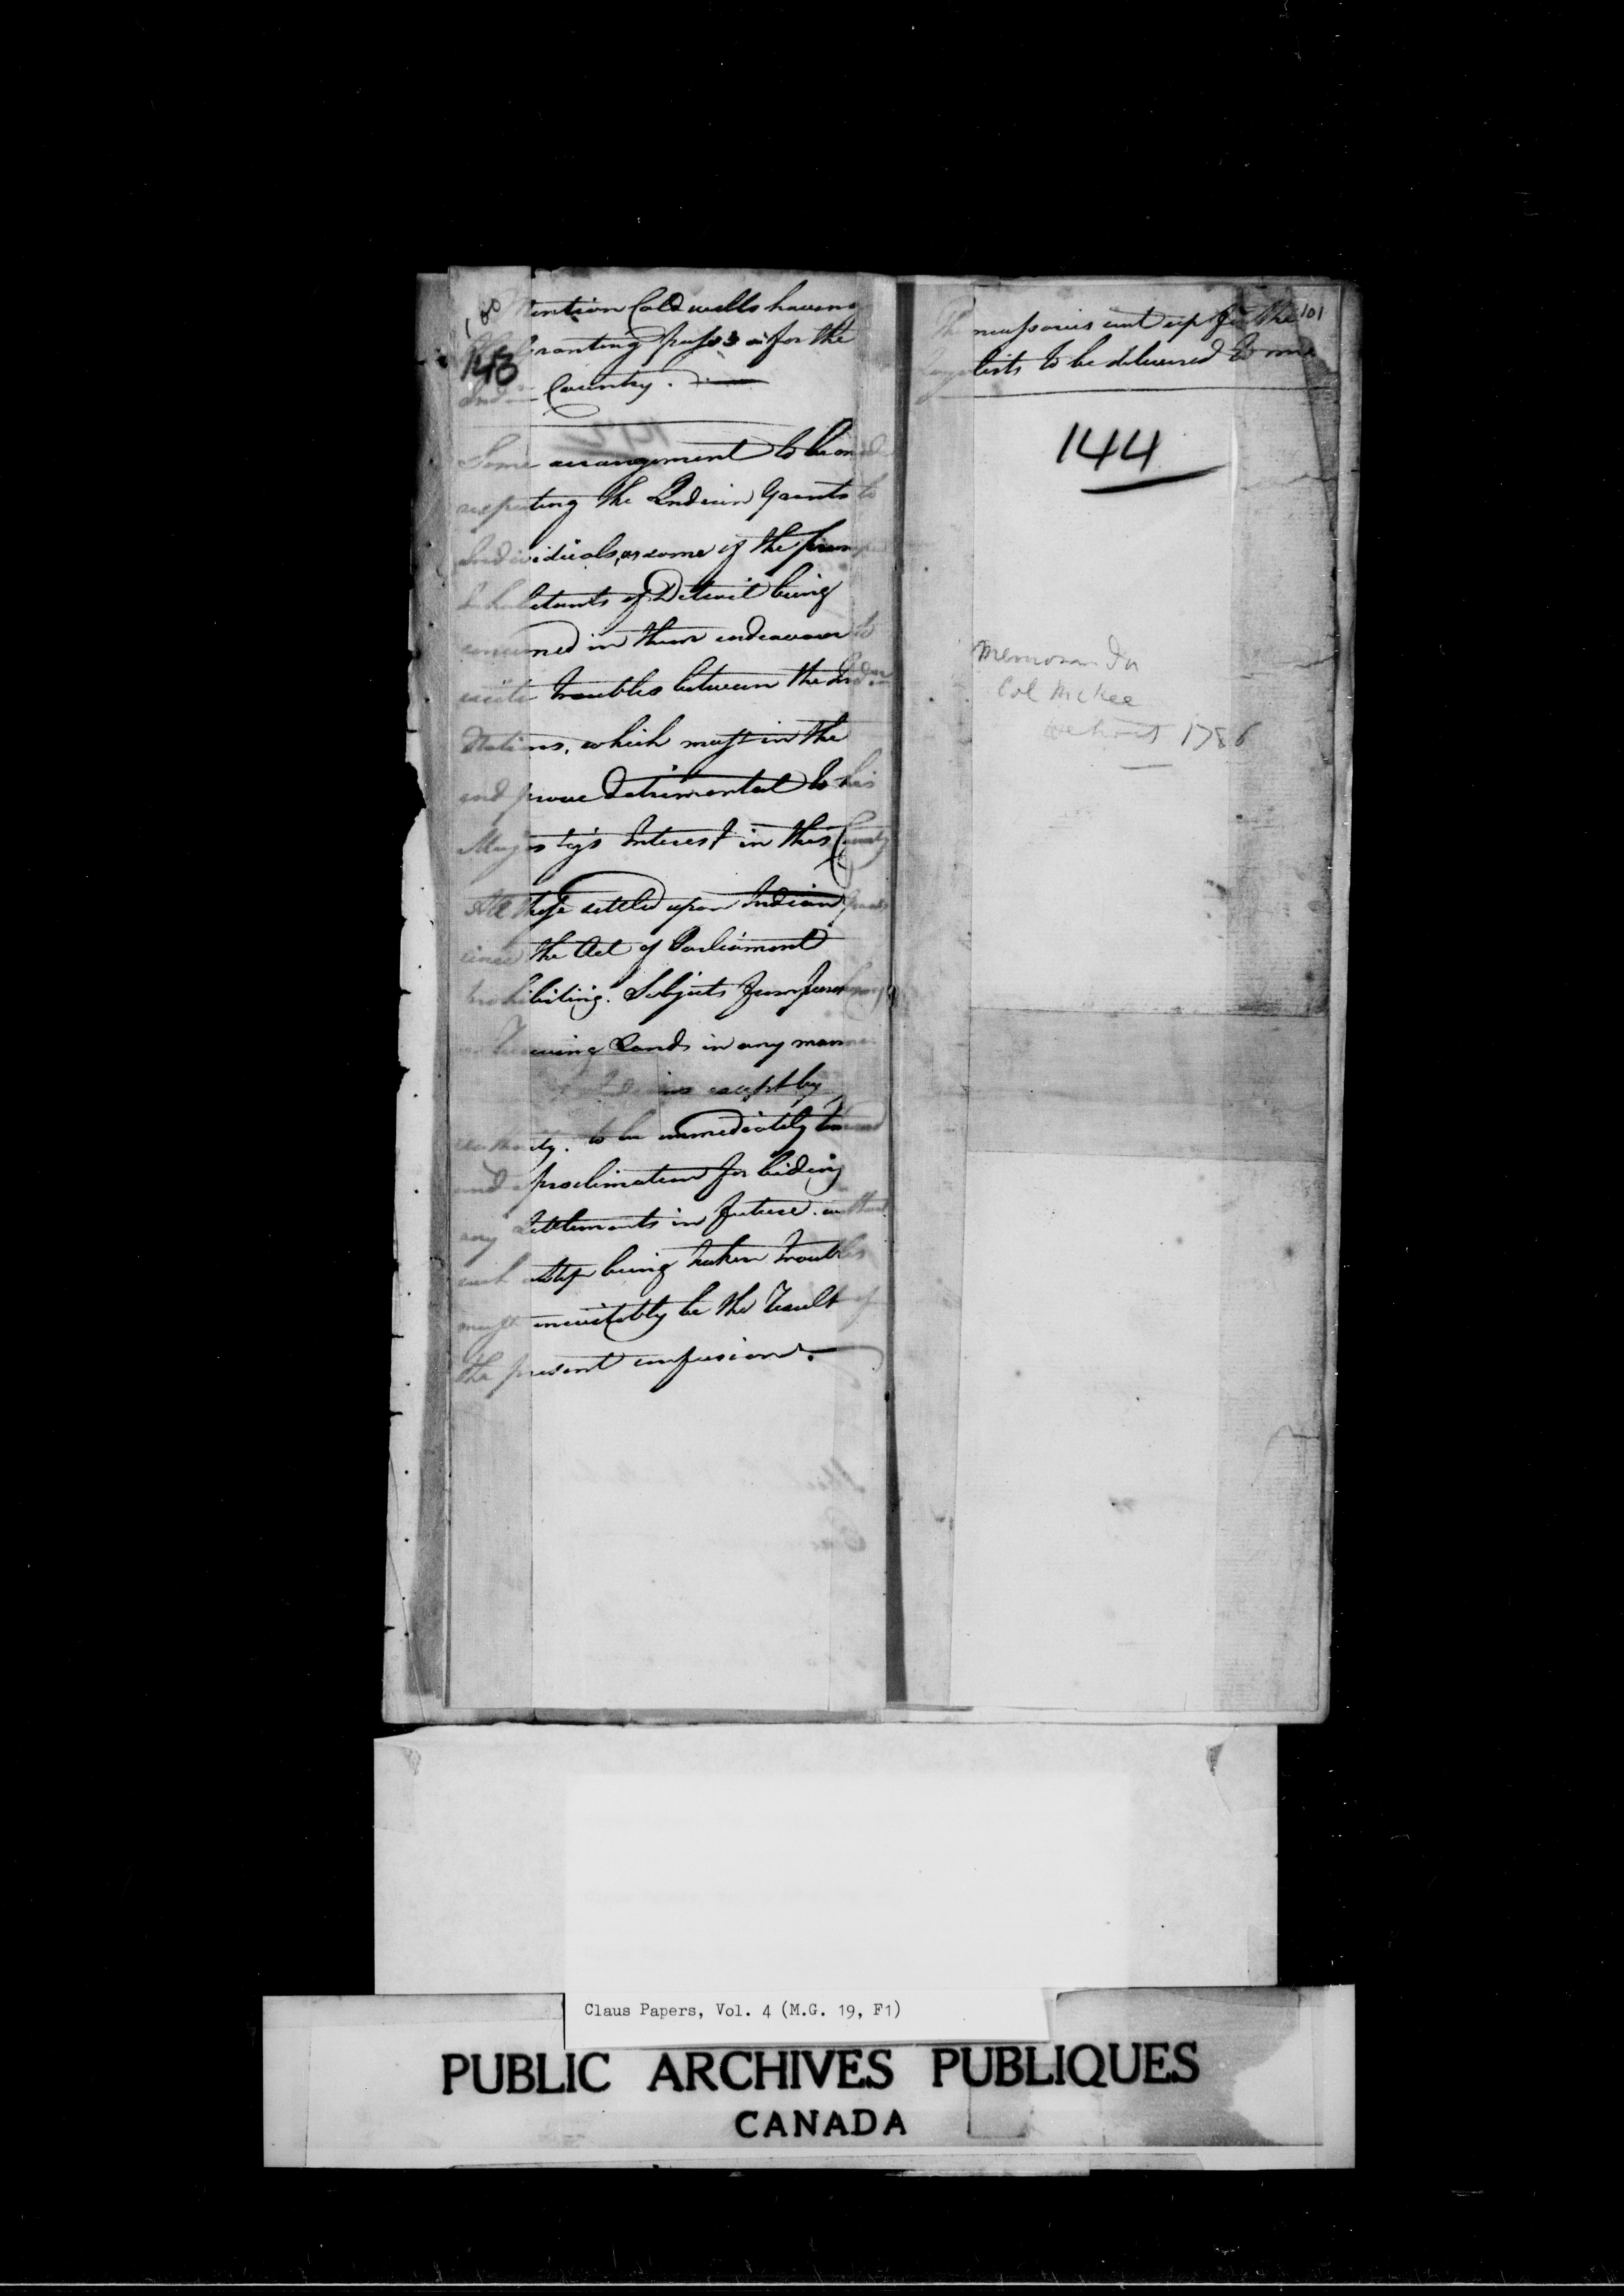 100
Mention Caldwells having
granting passes for the
143
Indian Country.
Some arrangement to be made
respecting the Indian Grants to
Individuals, as some of the principal
Inhabitants of Detroit being
concerned in them endeavour to
excite troubles between the Indian
Nations, which must in the
end prove detrimental to his
Majestys Interest in this Country
All those settled upon Indian Grants
since the Act of Parliament
prohibiting Subjects from purchasing
or receiving Lands in any manner
Indians except by
authority. to be immediately
and a proclimation forbiding
any Settlements in future. without
such a step being taken troubles
must inevitably be the Result of
the present confusion.
101
The necessaries sent up for the
Loyalists to be delivered to me
144
Memoranda
Col McKee
Detroit 1786
Claus Papers, Vol. 4 (M.G. 19, F1)
PUBLIC ARCHIVES PUBLIQUES
CANADA